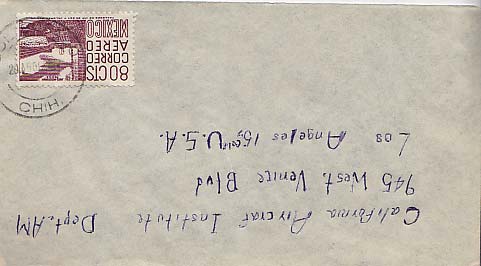 California Aircraf Institute Dept. AM
945 West. Venice Blvd
Los Angeles 15, Calif U.S.A.
80 CTS
CORREO
AEREO
MEXICO
CHIH.